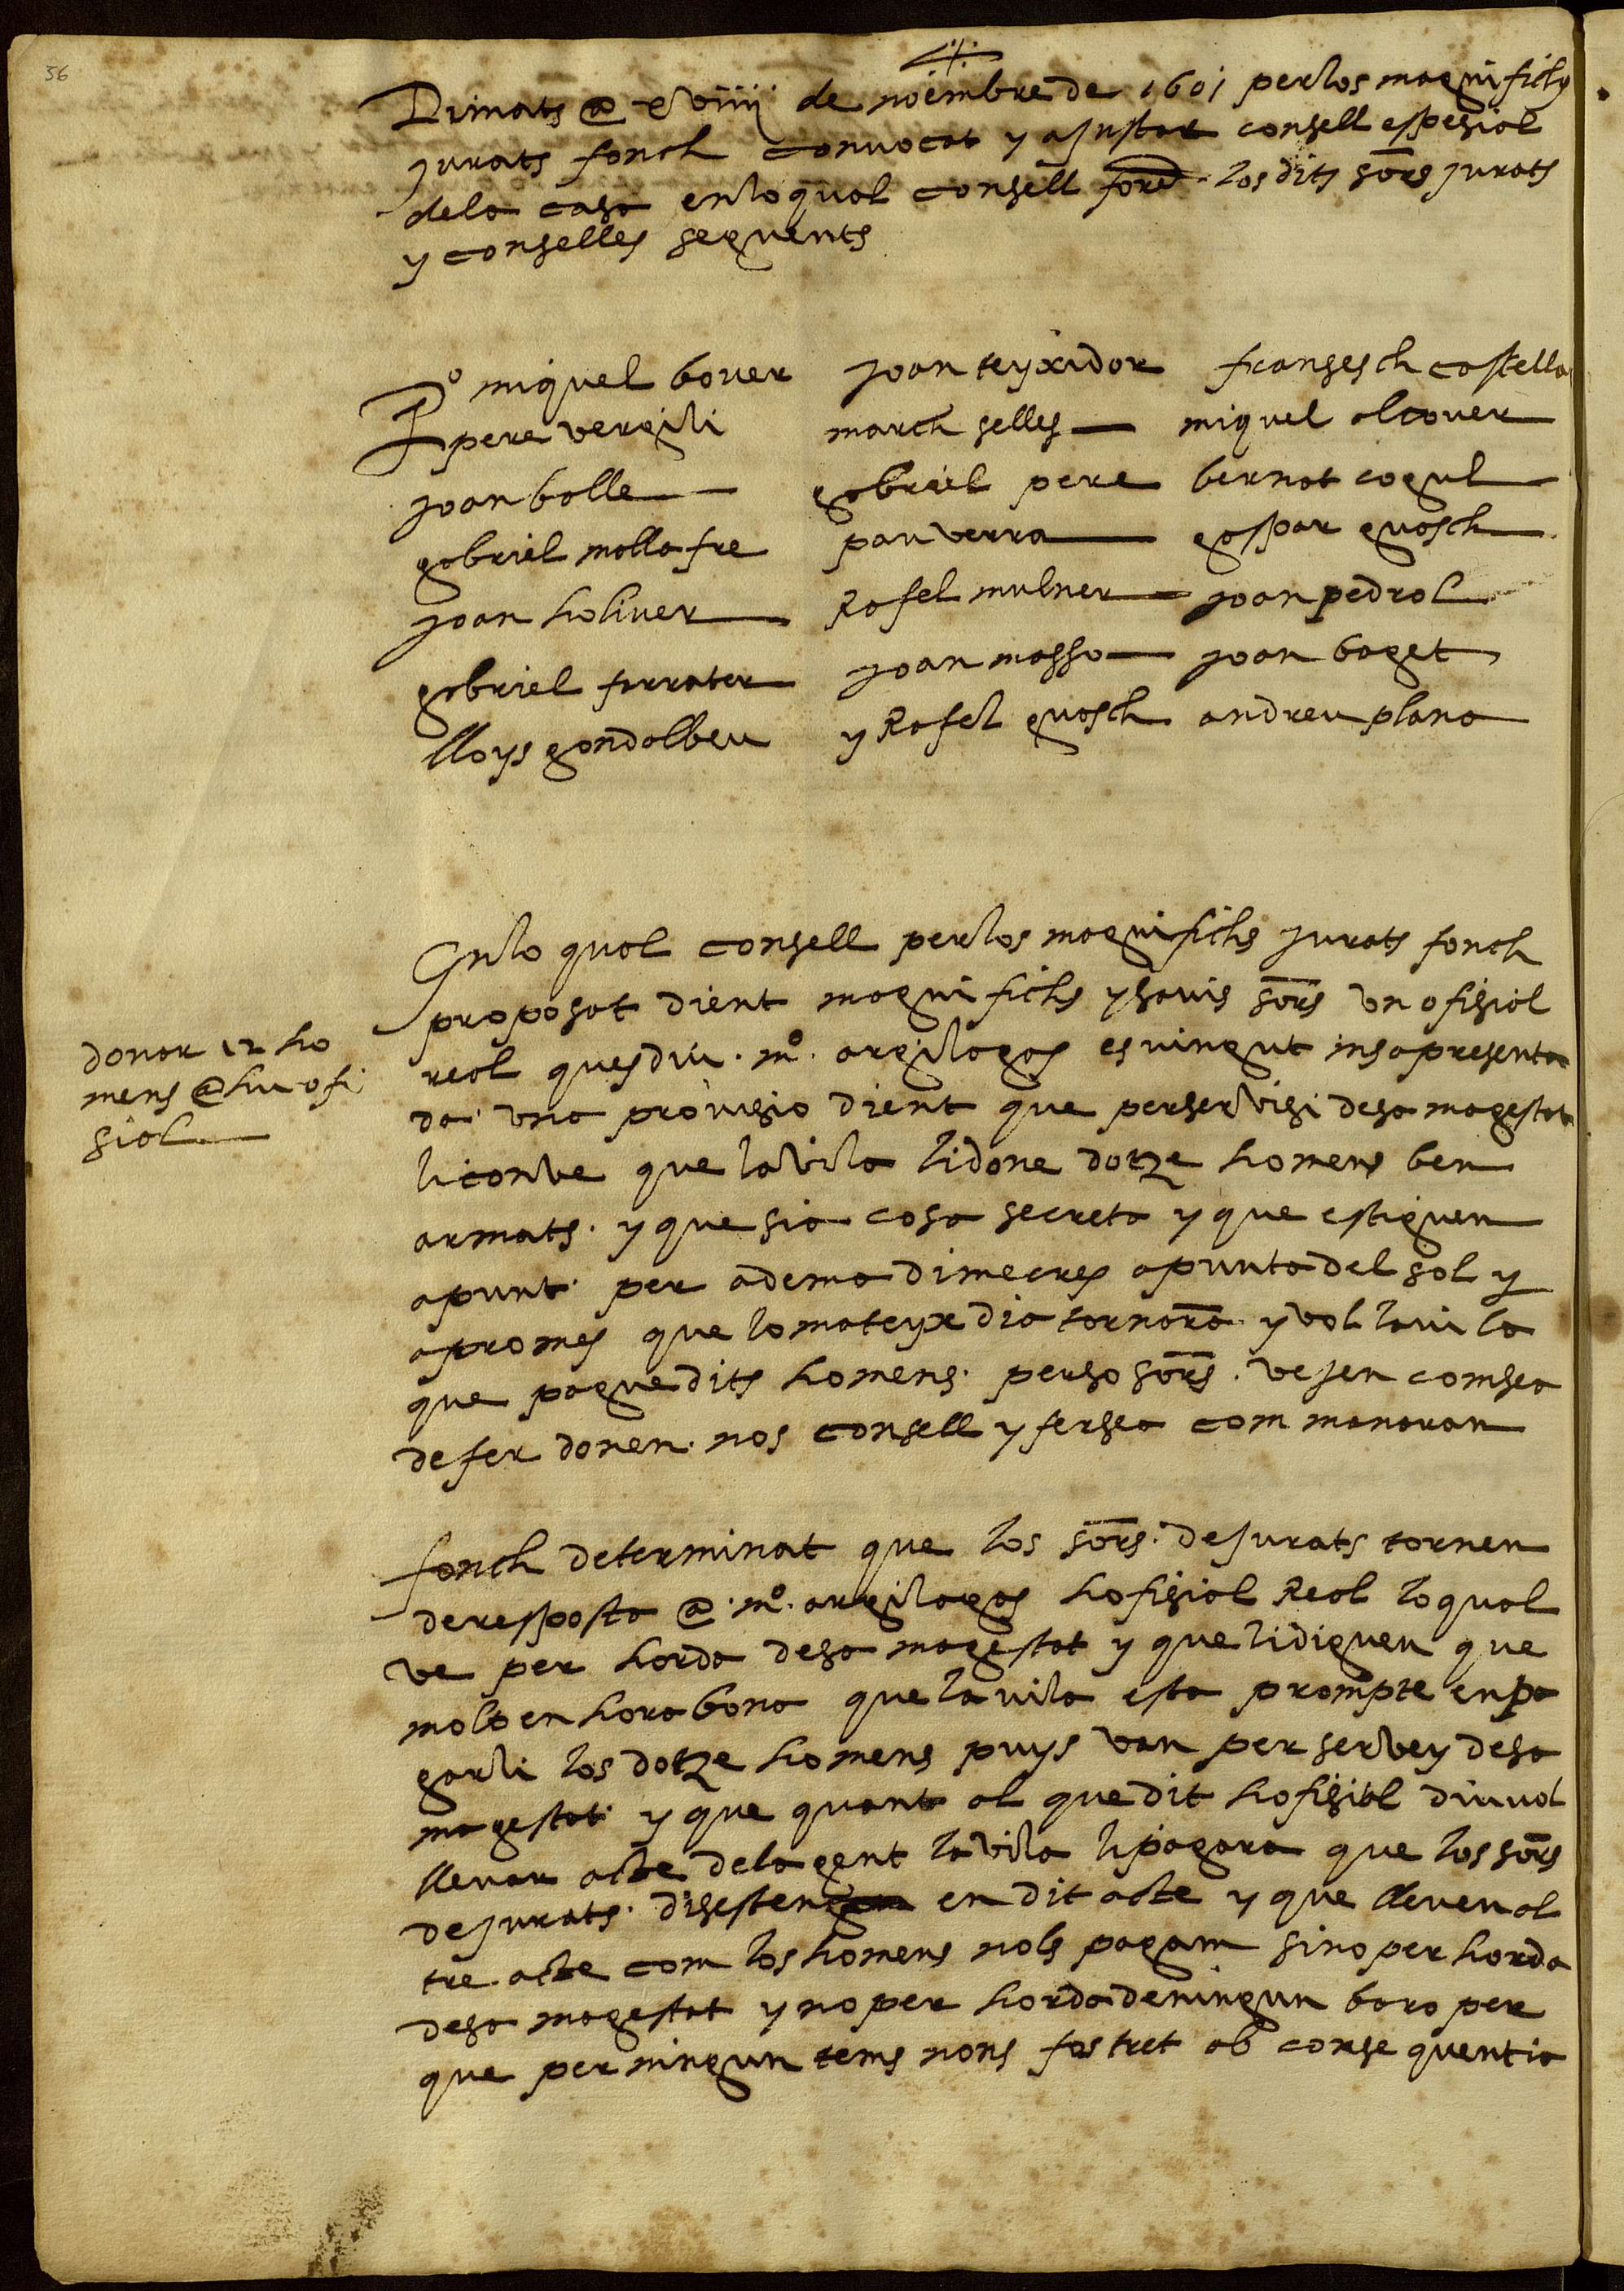 56
Dimats @ xviiii de noēmbre de 1601 per los magnifichs
jurats fonch convocat y ajustat consell espesial
de la casa en lo qual consell forē los dits sōrs jurats
y conselles seguents
Pº miquel bover joan teyxidor fransesch castella
pere vergili march selles miquel alcover
joan balle gabriel pere bernat cogul
gabriel mollafre pau verra gaspar guasch
joan holiver Rafel mulner joan pedrol
gabriel ferrater joan masso joan baget
lloys gondalbeu y Rafel guasch andreu plana
En lo qual consell per los magnifichs jurats fonch
proposat dient magnifichs y savis sōrs un ofisial
donar 12 ho
mens @ hu ofi
sial
real ques diu . mº . argilagas es vingut i nsa presenta
da una provisio dient que per servisi de sa magestat
li conve que la vila li done dotze homens ben
armats . y que sia cosa secreta y que estiguen
a punt per a dema dimecres a punta del sol y
a promes que lo mateyx dia tornarā y vol la vila
que pague dits homens . perso sōrs . vejen com sea
de fer donen nos consell y fersea com manaran
fonch determinat que los sōrs . de jurats tornen
de resposta @ . mº . argilagas hofisial Real lo qual
ve per horda de sa magestat y que li diguen que
molt en hora bona que la vila esta prompte en pa
garli los dotze homens puys van per servey de sa
magestat y que quant al que dit hofisial diu vol
llevar acte de la gent la vila li pagara que los sōrs
de jurats . disesten en dit acte y que lleven al
tre acte com los homens nols pagam sino per horda
de sa magestat y no per horda de ningun baro per
que per ningun tems nons fas tret ab consequentia